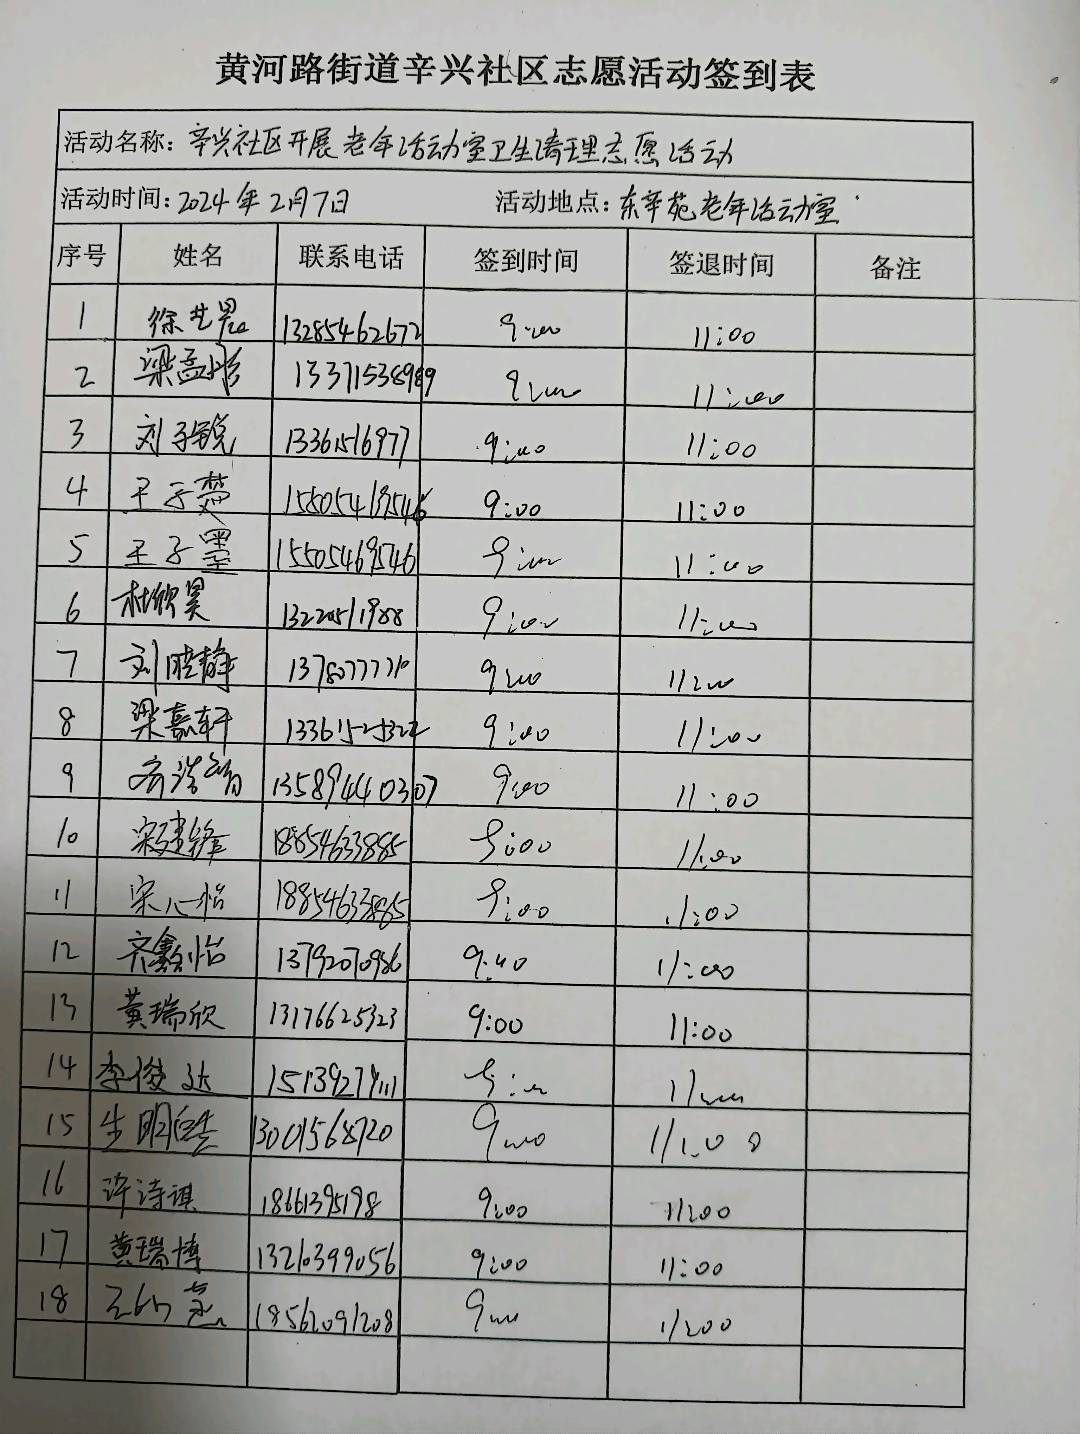 黄河路街道辛兴社区志愿活动签到表
活动名称：辛兴社区开展老年活动室卫生清理志愿活动
活动时间：2024年2月7日 活动地点：东辛苑老年活动室
序号 姓名 联系电话 签到时间 签退时间 备注
1 徐艺晨 13285462672 9:00 11:00
2 梁孟彤 13371538989 9:00 11:00
3 刘子锐 13361516977 9:00 11:00
4 王子楚 9:00 11:00
5 王子墨 15505469546 9:00 11:00
6 杜欣昊 13220511988 9:00 11:00
7 刘晓静 9:00 11:00
8 梁嘉轩 9:00 11:00
9 13589440307 9:00 11:00
10 宋建锋 18854633885 9:00 11:00
11 宋心怡 18854633885 9:00 11:00
12 齐鑫怡 13792070986 9:00 11:00
13 黄瑞欣 13176625323 9:00 11:00
14 李俊达 9:00 11:00
15 生明皓 13001568720 9:00 11:00
16 许诗琪 9:00 11:00
17 黄瑞博 13210399056 9:00 11:00
18 18562091208 9:00 11:00